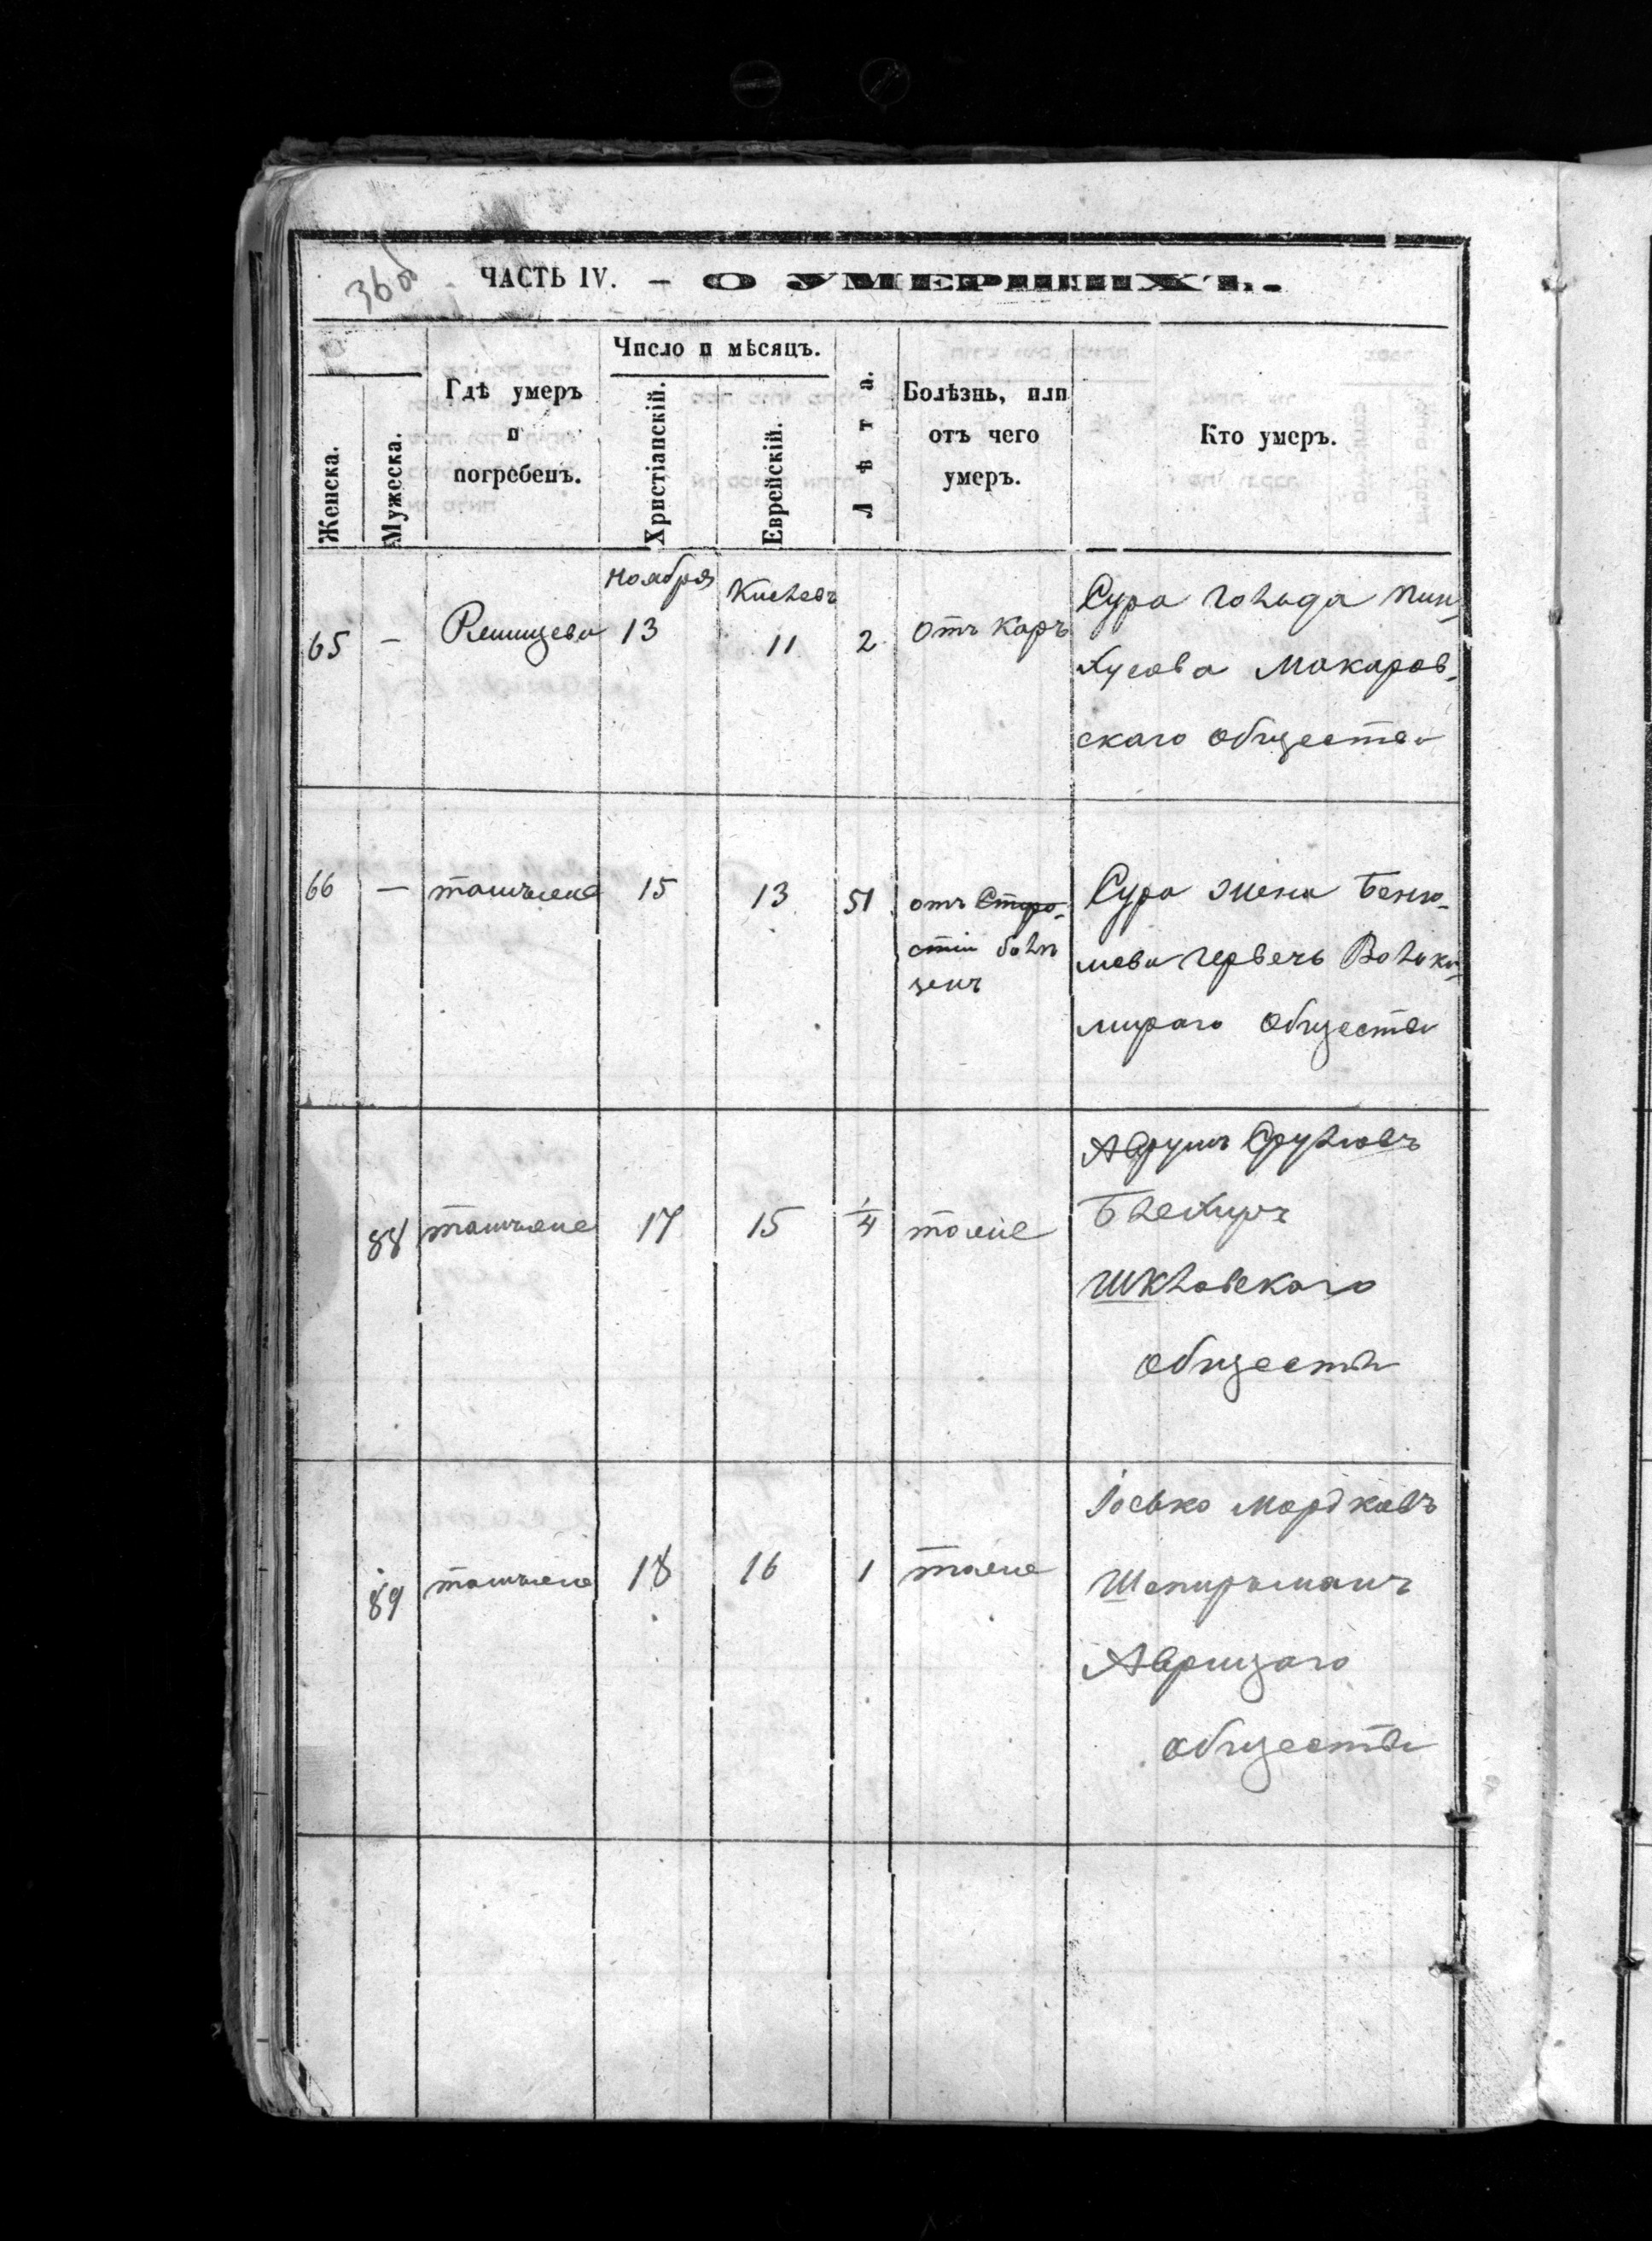 36об
ЧАСТЬ IV. — О УМЕРШИХЪ.
Женска.
Мужеска.
Гдѣ умеръ
и
погребенъ.
Число и мѣсяцъ.
Христіанскій.
Еврейскій.
Лѣта.
Болѣзнь, или
отъ чего
умеръ.
Кто умеръ.
Ноября Кислевъ
65 — 13 11 2 отъ Коръ
Сура Голда Пин-
хусова Макаров-
скаго общества
66 — тамъже 15 13 51 отъ Старо-
стіи
Сура жена Беню-
мираго общества
88 тамъже 17 15 1/4 тоже
Аврумъ Срулювъ
Блехиръ
Шкловскаго
общества
89 тамъже 18 16 1 тоже
Іосько Мордковъ
Шапирманъ
Аврицаго
общества